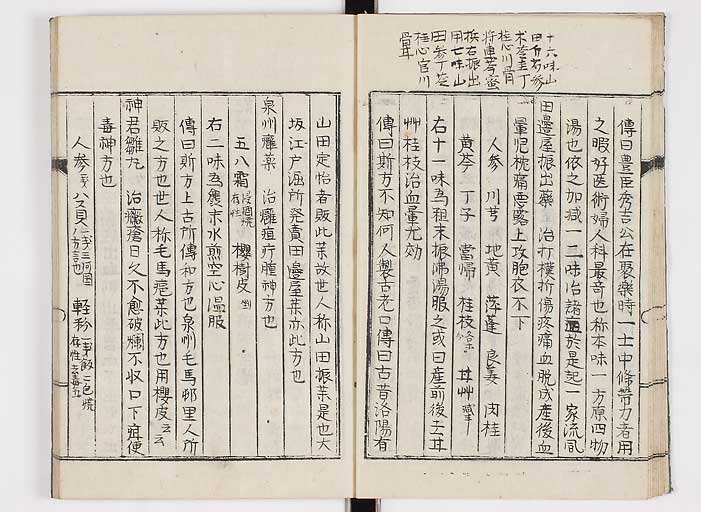 十六味山
田方
木香丁
桂心川骨
浜右振出
用七味山
桂心官川
傳曰豊臣秀吉公在聚樂時一士中條帯力者用
之暇好医術婦人科最竒也称本味一方原四物
湯也依之加減一二味治諸於是起一家流凬
田邉屋振出藥 治打撲折傷疼痛血脱或產後血
暈児枕痛悪露上攻胞衣不下
人参 川芎 地黄 萍蓬 良姜 肉桂
黄芩 丁子 當帰 桂枝各 甘艸
右十一味為粗末振沸湯服之或曰産前後去甘
艸桂枝治血暈尤効
傳曰斯方不知何人製古老口傳曰古昔洛陽有
山田定怡者販此茱故世人称山田振茱是也大
坂江戸海所発賣田邉屋茱亦此方也
泉州癰薬 治癰疽疔腫神方也
五八霜 櫻樹皮
右二味為末水煎空心温服
傳曰斯方上古所傳和方也泉州毛馬邨里人所
販之方也世人称毛馬疱茱此方也用櫻皮云云
神君雛丸 治癥瘡日久不愈破爛不収口下疳便
毒神方也
人参 八久貝 三河国方言也 軽粉